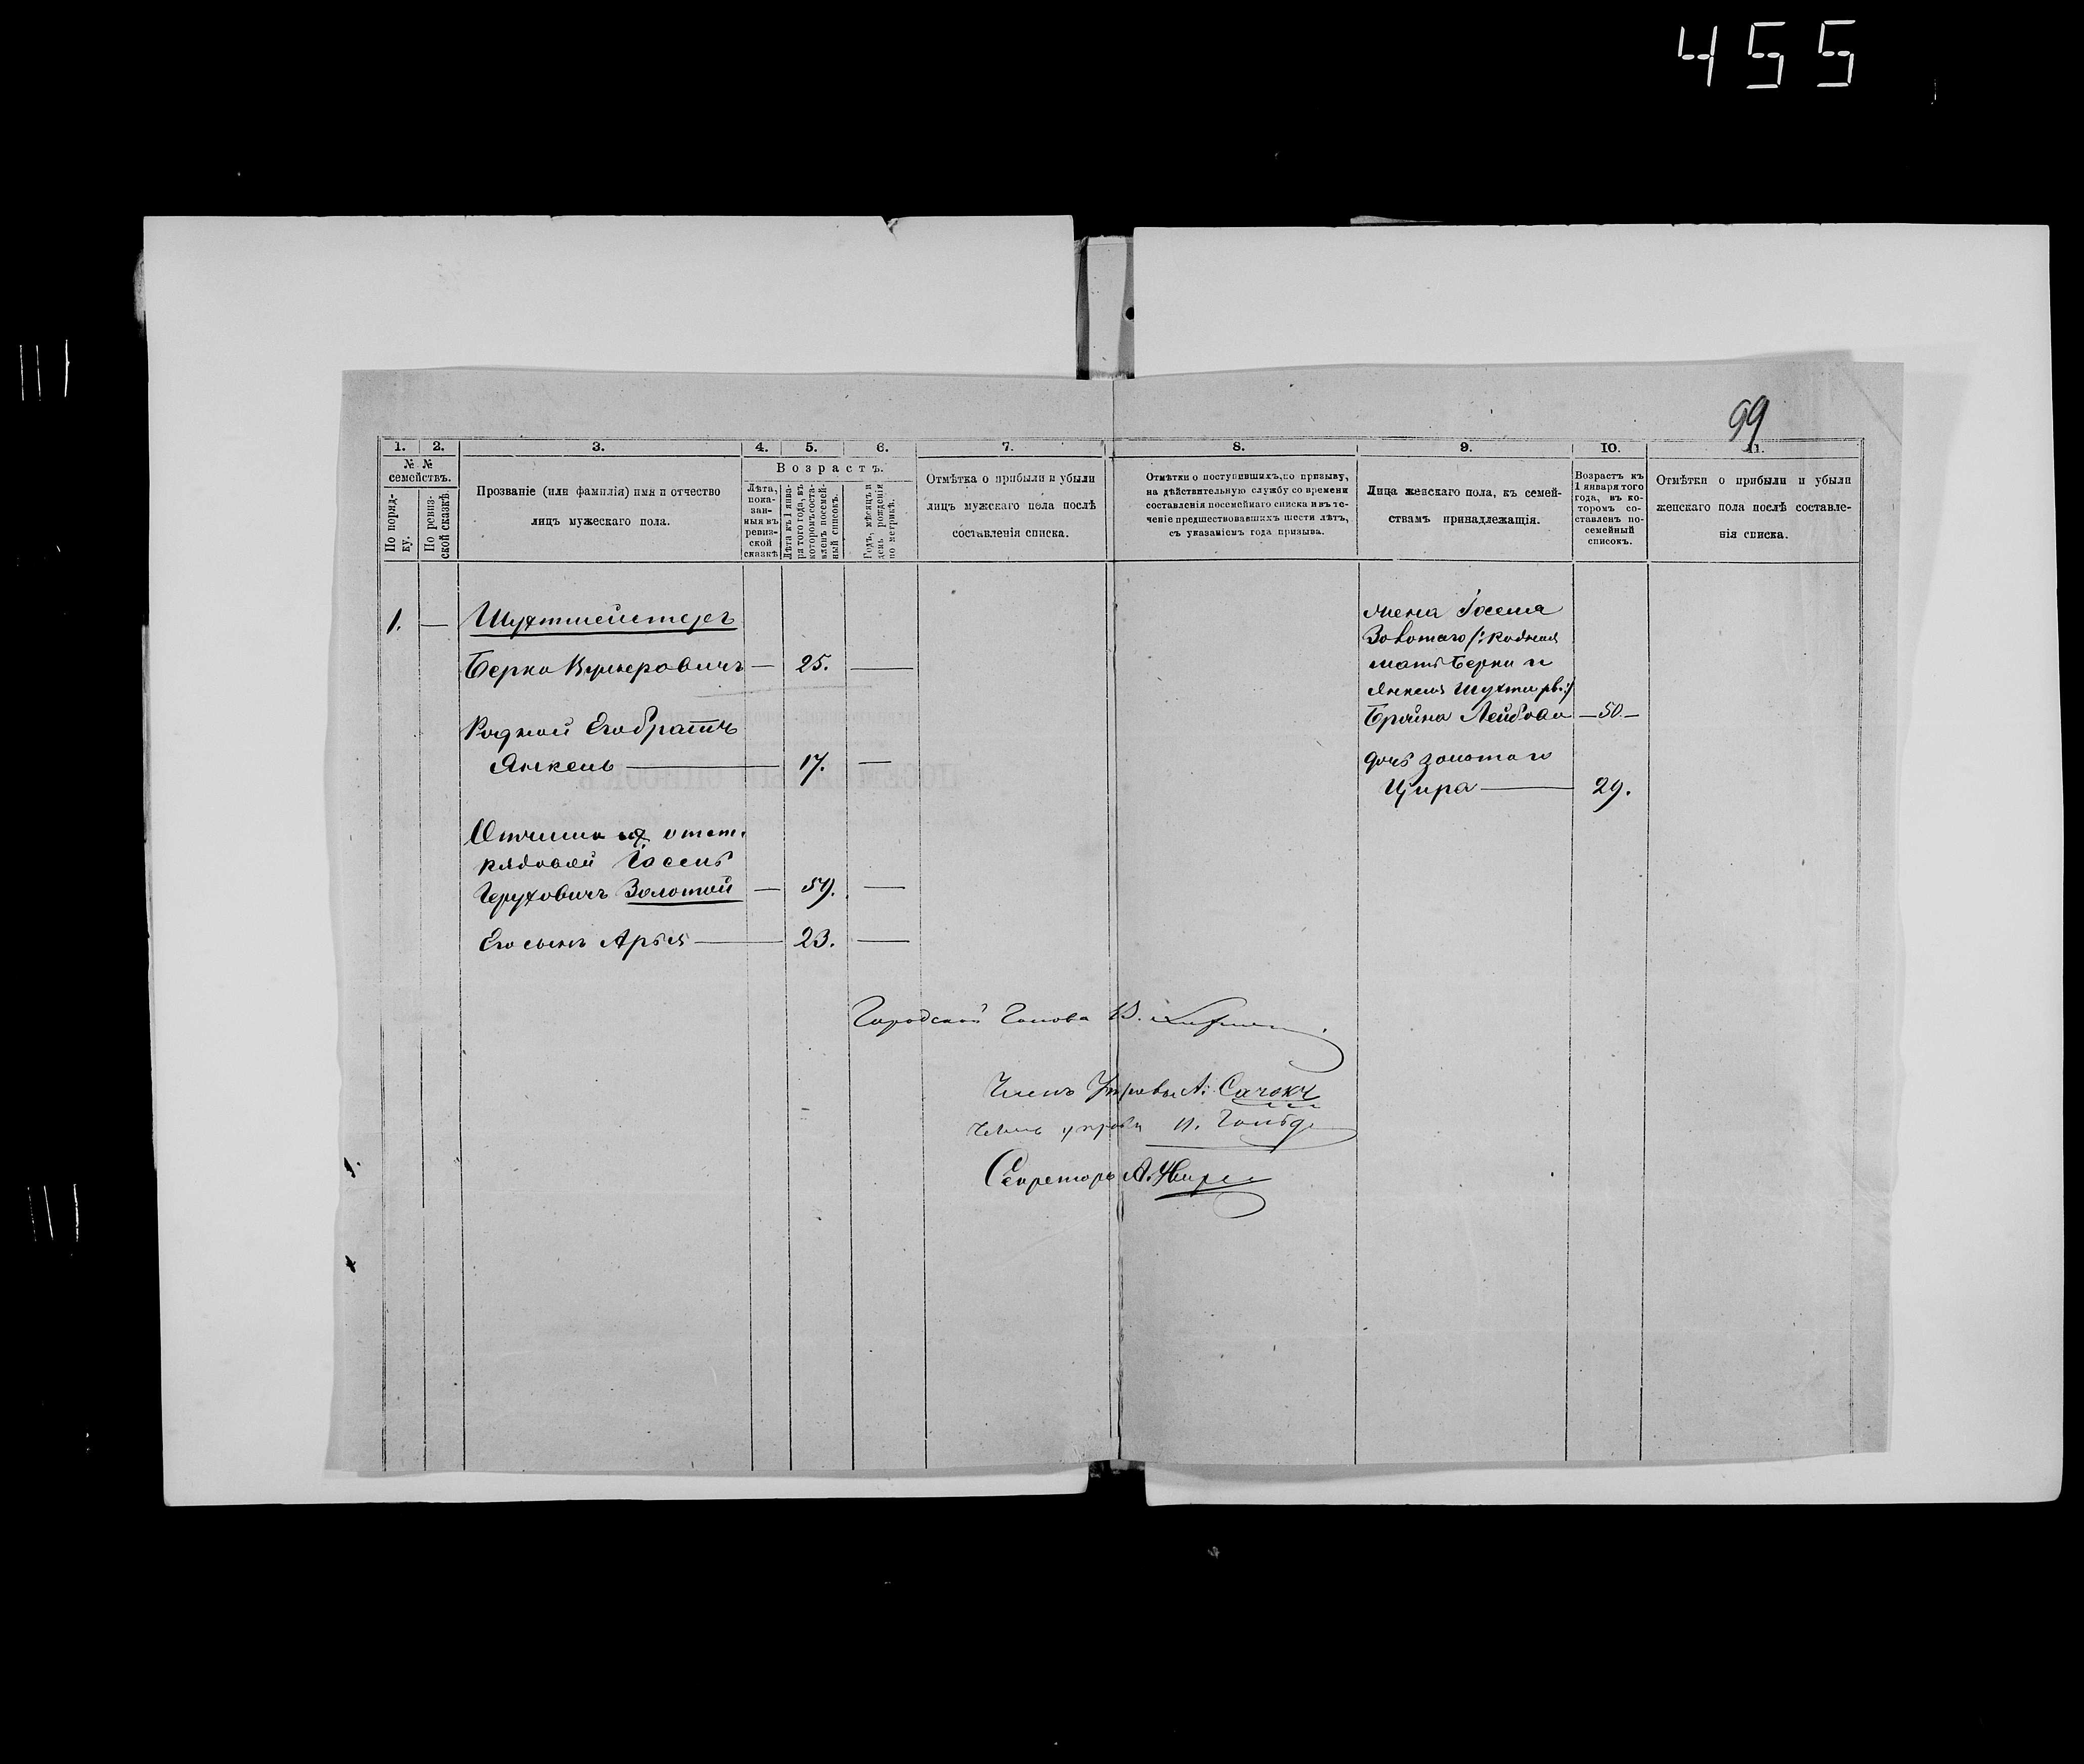 455
99
1. 2. 3. 4. 5. 6. 7. 8. 9. 10. 11.
№ №
семействъ.
По поряд-
ку.
По ревиз-
ской сказкѣ
Прозваніе (или фамилія) имя и отчество
лицъ мужескаго пола.
Возрастъ.
Лѣта,
пока-
зан-
ныя въ
ревиз-
ской
сказкѣ
Лѣта къ 1 янва-
ря того года, въ
которомъ соста-
вленъ посемей-
ный списокъ.
Годъ, мѣсяцъ и
день рожденія
по метрикѣ.
Отмѣтка о прибыли и убыли
лицъ мужскаго пола послѣ
составленія списка.
Отмѣтки о поступившихъ, по призыву,
на дѣйствительную службу со времени
составленія посемейнаго списка и въ те-
ченіе предшествовавшихъ шести лѣтъ,
съ указаніемъ года призыва.
Лица женскаго пола, къ семей-
ствамъ принадлежащія.
Возрастъ къ
1 января того
года, въ ко-
торомъ со-
ставленъ по-
семейный
списокъ.
Отмѣтки о прибыли и убыли
женскаго пола послѣ составле-
нія списка.
1. — Шухтмейстеръ
Берко Кушеровичъ — 25. —
Родной Его братъ
Янкель — 17. —
Отчимъ их отст.
рядовой Іосель
Герховичъ Золотой — 59. —
Его сынъ Арья — 23. —
Жена Іоселя
Золотаго /: Родная
мать Берки и
Янкеля Шухтм рв.:/
Брайна Лейбова — 50 —
дочь Золотаго
Цира — 29.
Городской Голова В.
Членъ Управы А. Сачокъ
Членъ управы И. Гольд
Секретарь А.